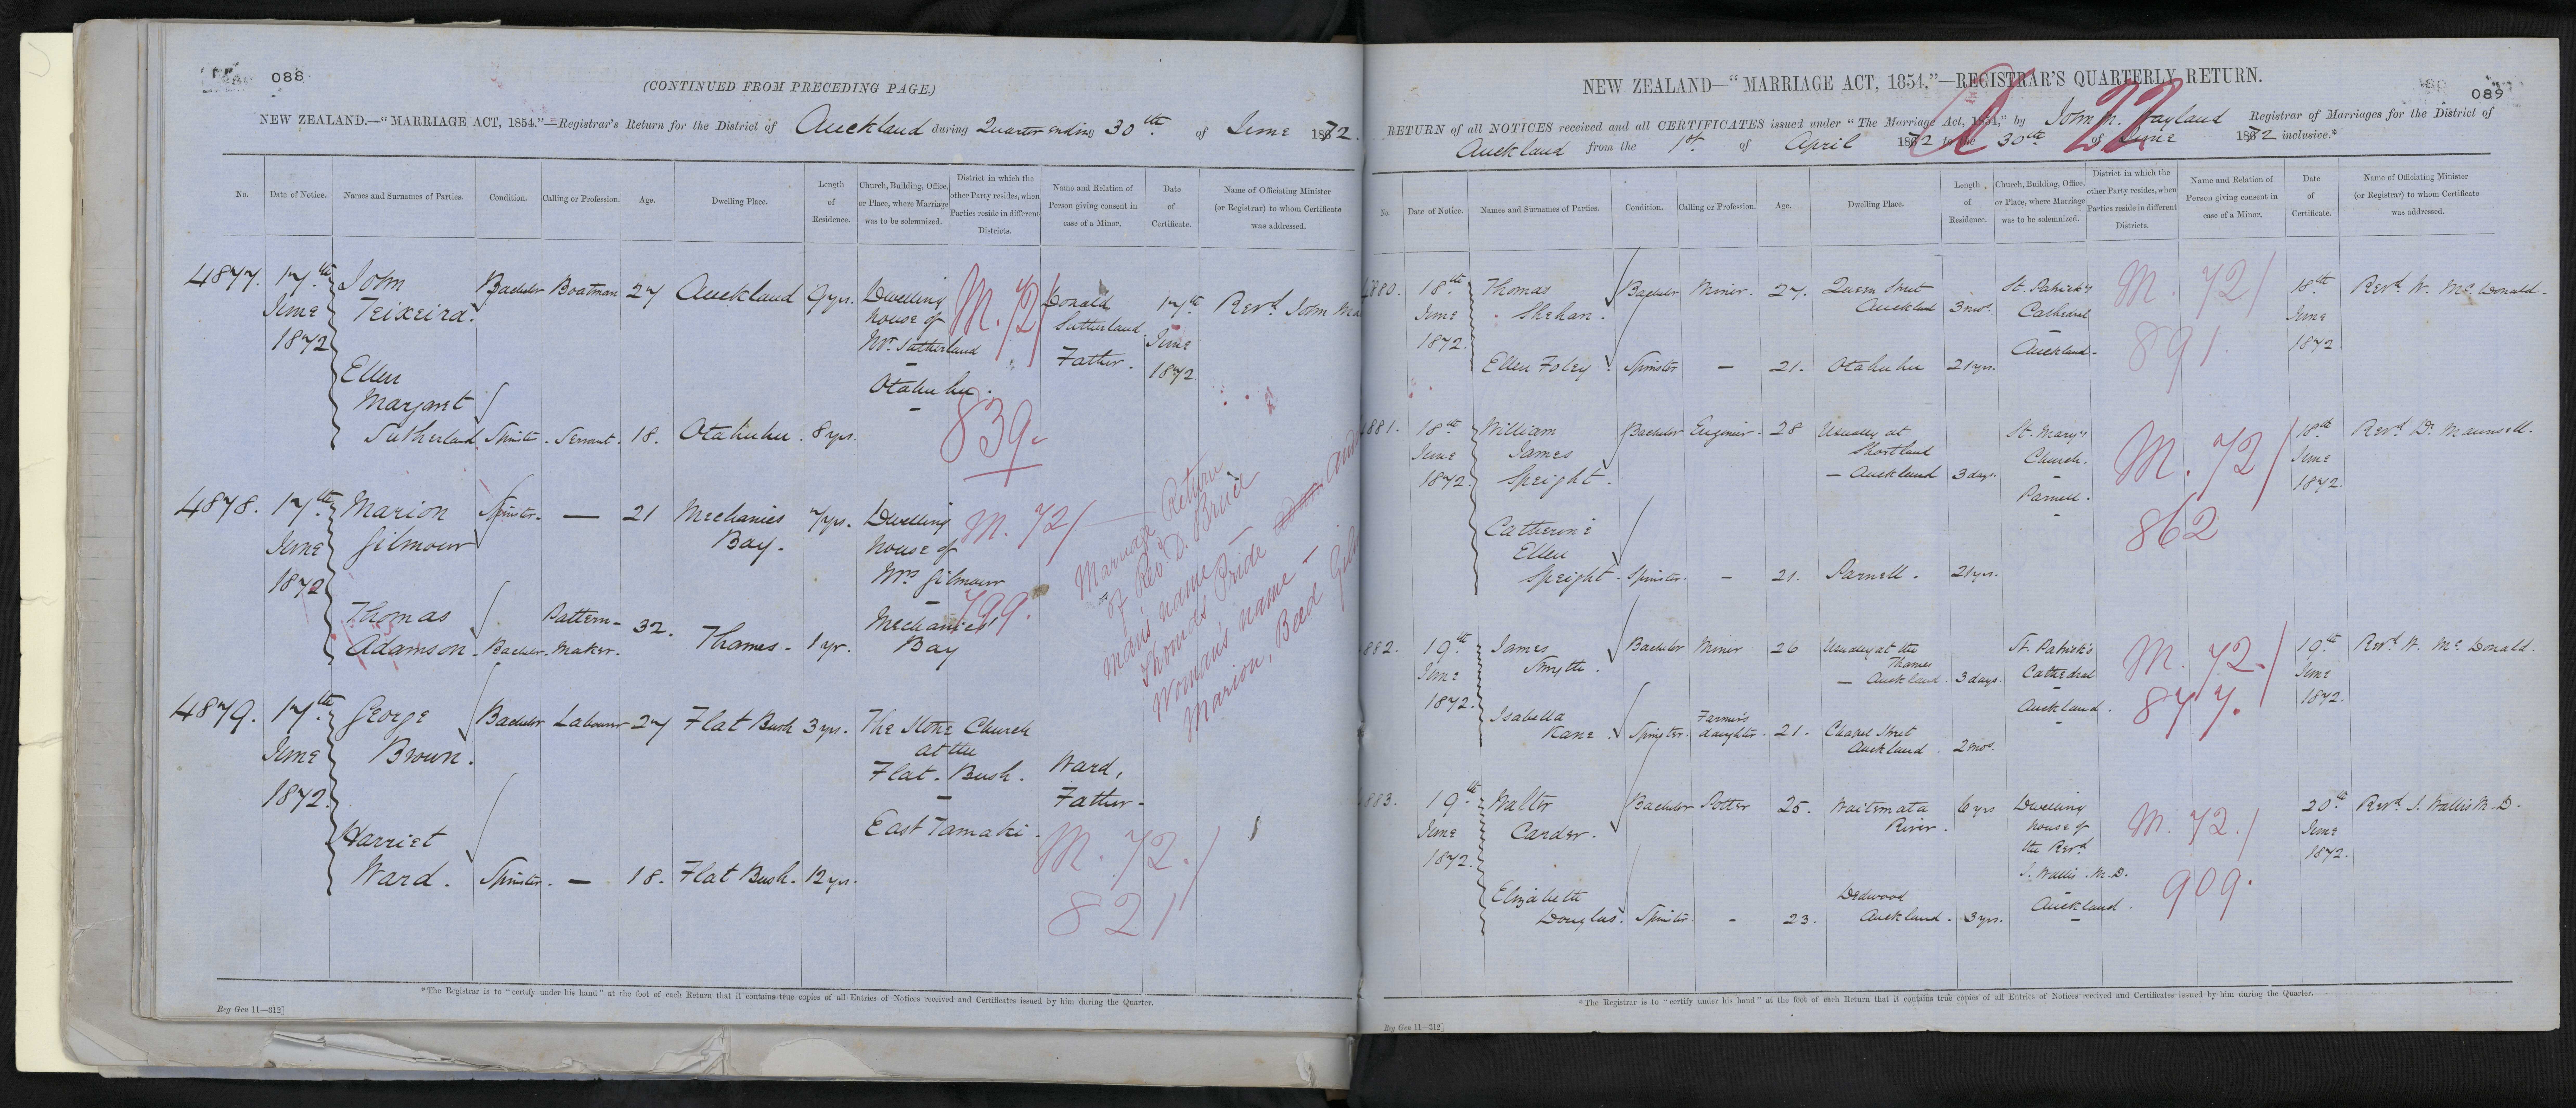 088
(CONTINUED FROM PRECEDING PAGE.)
NEW ZEALAND.—"MARRIAGE ACT, 1854."—Registrar's Return for the District of Auckland during Quarter ending 30th of June 1872.
No.
Date of Notice.
Names and Surnames of Parties.
Condition.
Calling or Profession.
Age.
Dwelling Place.
Length of Residence.
Church, Building, Office, or Place, where Marriage was to be solemnized.
District in which the other Party resides, when Parties reside in different Districts.
Name and Relation of Person giving consent in case of a Minor.
Date of Certificate.
Name of Officiating Minister (or Registrar) to whom Certificate was addressed.
4877. 17th June 1872
John Teixeira. Bachelor Boatman 27 Auckland 9 yrs.
Dwelling house of Mr. Sutherland – Otahuhu.
M. 72/
839.
Donald Sutherland. Father.
17th June 1872
Revd. John
Ellen Margaret Sutherland Spinster. Servant. 18. Otahuhu. 8 yrs.
4878. 17th June 1872
Marion Gilmour Spinster. — 21 Mechanics Bay. 7 yrs.
Dwelling house of Mrs Gilmour – Mechanics Bay
M. 72/
799.
Thomas Adamson. Bachelor. Pattern-Maker. 32. Thames. 1 yr.
Marriage Return
of Revd. D. Bruce
Man's name —
Thomas Pride
Woman's name —
Marion,
4879. 17th June 1872.
George Brown. Bachelor Labourer 27 Flat Bush 3 yrs.
The Stone Church at the Flat-Bush. – East Tamaki.
Ward, Father.
M. 72./
821
Harriet Ward. Spinster. — 18. Flat Bush. 12 yrs.
*The Registrar is to "certify under his hand" at the foot of each Return that it contains true copies of all Entries of Notices received and Certificates issued by him during the Quarter.
Reg Gen 11—312]
089
NEW ZEALAND—"MARRIAGE ACT, 1854."—REGISTRAR'S QUARTERLY RETURN.
22
RETURN of all NOTICES received and all CERTIFICATES issued under "The Marriage Act, 1854," by John Wayland Registrar of Marriages for the District of
Auckland from the 1st of April 1872 to the 30th of June 1872 inclusive.*
No.
Date of Notice.
Names and Surnames of Parties.
Condition.
Calling or Profession.
Age.
Dwelling Place.
Length of Residence.
Church, Building, Office, or Place, where Marriage was to be solemnized.
District in which the other Party resides, when Parties reside in different Districts.
Name and Relation of Person giving consent in case of a Minor.
Date of Certificate.
Name of Officiating Minister (or Registrar) to whom Certificate was addressed.
880. 18th June 1872.
Thomas Shehan. Bachelor Miner. 27. Queen Street Auckland 3 mos.
St. Patrick's Cathedral – Auckland.
M. 72/
891
18th June 1872
Revd. W. McDonald.
Ellen Foley. Spinster — 21. Otahuhu 21 yrs.
881. 18th June 1872.
William James Speight. Bachelor Engineer. 28 Usually at Shortland – Auckland 3 days.
St. Mary's Church. – Parnell.
M. 72/
862
18th June 1872.
Revd. Dr. Maunsell.
Catherine Ellen Speight. Spinster. – 21. Parnell. 21 yrs.
882. 19th June 1872.
James Smyth. Bachelor Miner 26 Usually at the Thames – Auckland. 3 days.
St. Patrick's Cathedral – Auckland.
M. 72./
877.
19th June 1872.
Revd. W. McDonald.
Isabella Kane. Spinster. Farmer's daughter. 21. Chapel Street Auckland. 2 mos.
883. 19th June 1872.
Walter Carder. Bachelor Potter 25. Waitemata River. 6 yrs
Dwelling house of the Revd. J. Wallis M.D. – Auckland.
M. 72./
909.
20th June 1872.
Revd. J. Wallis M.D.
Elizabeth Douglas. Spinster. – 23. Dedwood Auckland. 3 yrs.
*The Registrar is to "certify under his hand" at the foot of each Return that it contains true copies of all Entries of Notices received and Certificates issued by him during the Quarter.
Reg Gen 11—312]